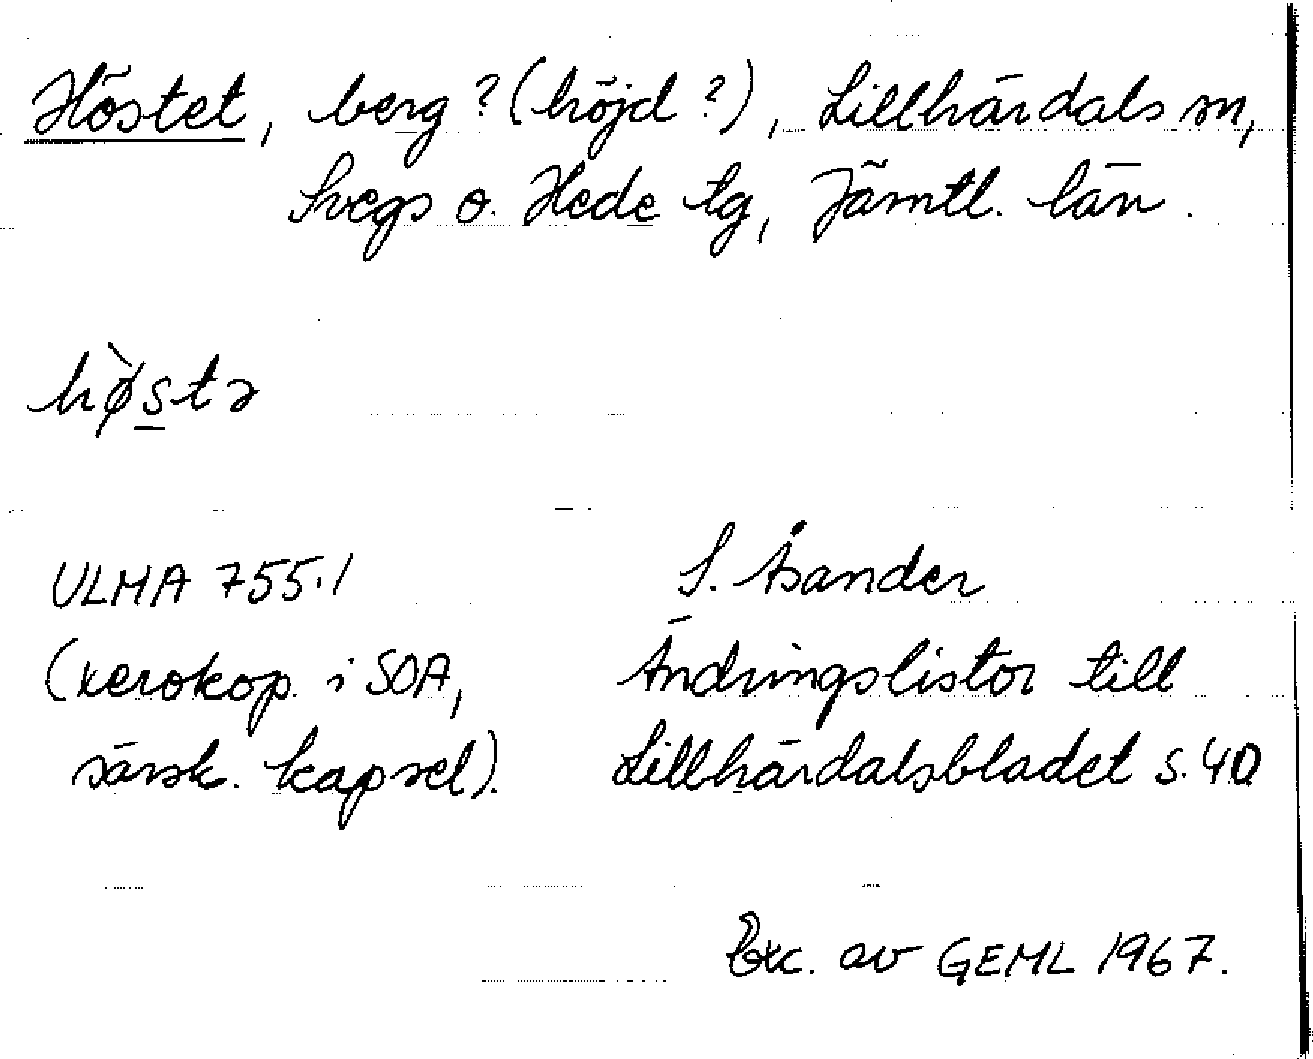 Höstet, berg? (höjd?), Lillhärdals sn,
Svegs o. Hede tg, Jämtl. län.
hø̀stə
ULMA 755:1
(xerokop. i SOA,
särsk. kapsel).
S. Åsander
Ändringslistor till
Lillhärdalsbladet s. 40
Exc. av GEML 1967.